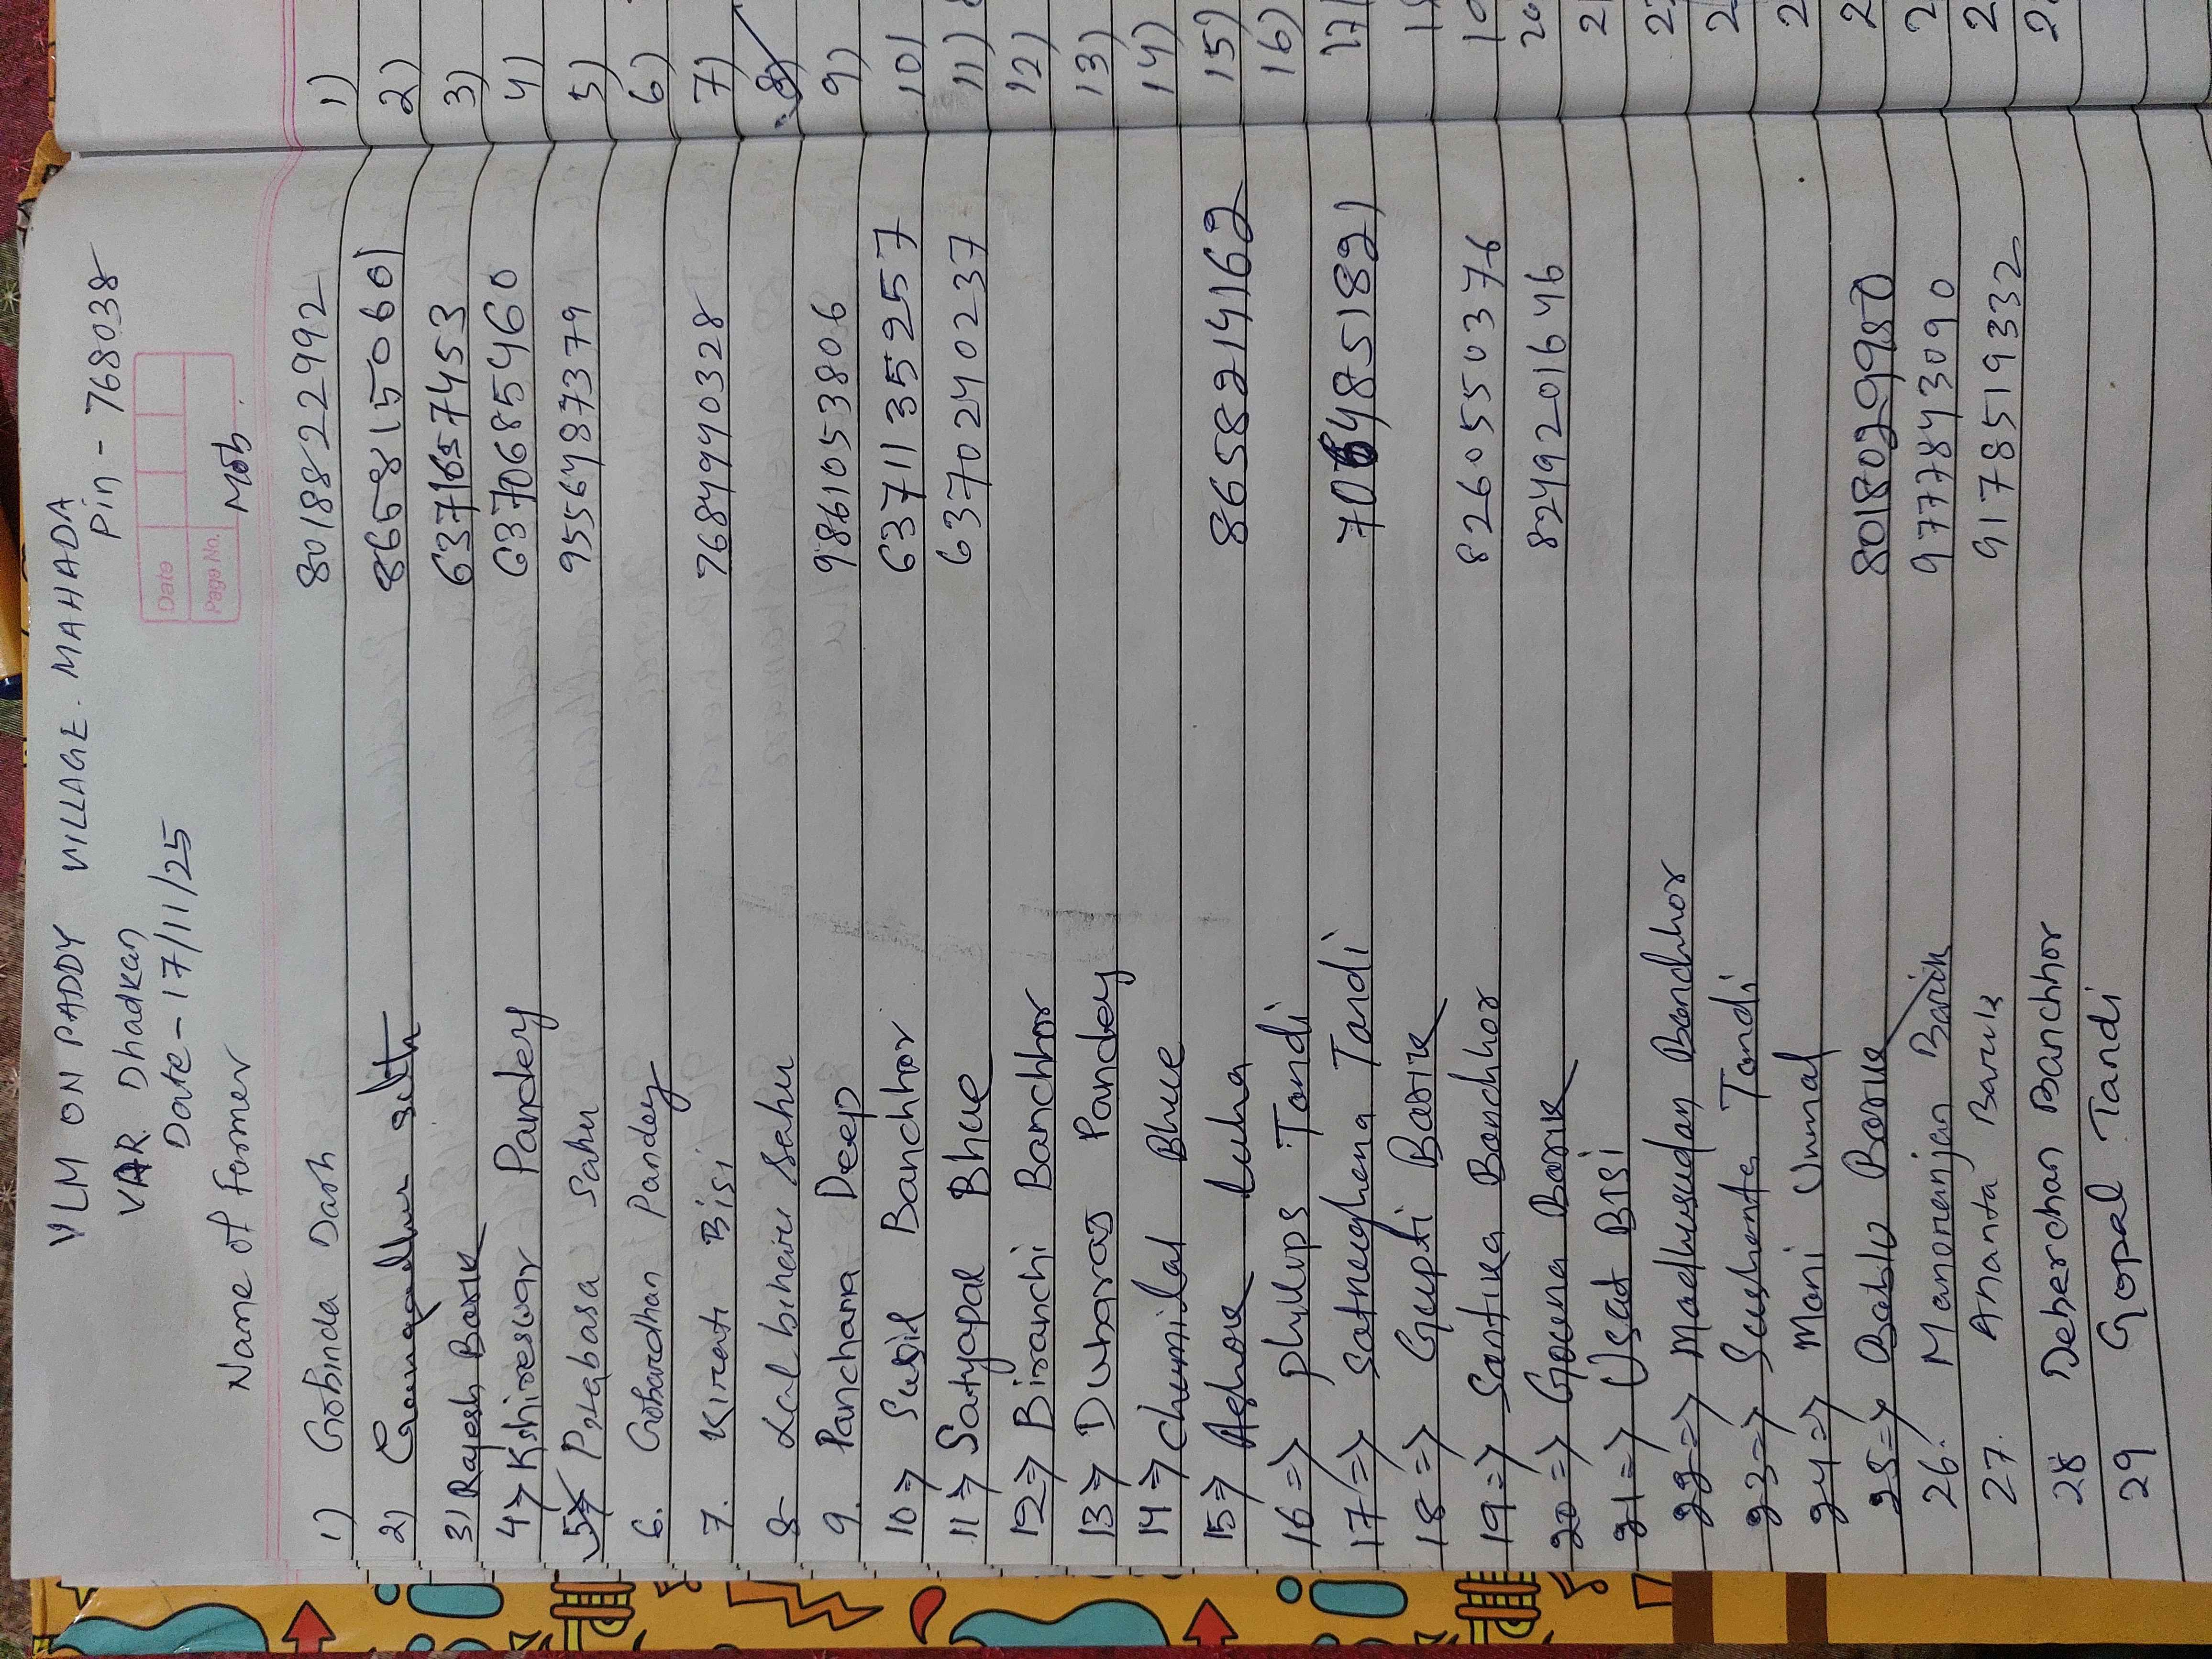 VLM ON PADDY VILLAGE. MAHADA
VAR. Dhadkan Pin - 768038
Date - 17/11/25
Date
Page No.
Name of Farmer Mob.
1) Gobinda Dash 8018822992
2) 8658150601
3) Rajesh Barik 6371657453
4) Kshireswar Pandey 6370685460
5) Prabasa Sahu 9556487379
6. Gobardhan Pandey
7. Kirati Bisi 7684940328
8- Lal bihari Sahu
9. Panchana Deep 9861053806
10 => Banchhor 6371135257
11 => Satyapal Bhue 6370240237
12 => Biranchi Banchhor
13 => Dubaraj Pandey
14 => Chumilal Bhue
15 => Ashok Luha 8658214162
16 => phylups Tandi
17 => Satrughana Tandi 485182
18 => Gupti Barik
19 => Santika Banchhor 8260550376
20 => Goura Barik 8249201646
21 => Usat Bisi
22 => Madhusudan Banchhor
23 => Sushanta Tandi
24 => Mani Unmal
25 => Bablu Barik 8018029980
26. Manoranjan Barik 9777843090
27. Ananta Barik 9178519332
28 Deherchan Banchhor
29 Gopal Tandi
1)
2)
3)
4)
5)
6)
7)
8)
9)
10)
11)
12)
13)
14)
15)
16)
17)